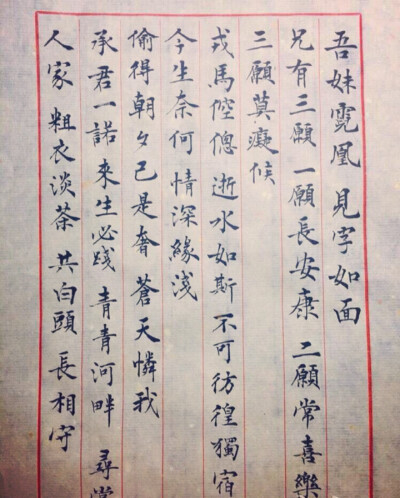 吾妹霓凰 見字如面
兄有三願 一願長安康 二願常喜樂
三願莫癡候
戎馬倥傯 逝水如斯 不可彷徨獨宿
今生奈何 情深緣淺
偷得朝夕已是奢 蒼天憐我
承君一諾 來生必踐 青青河畔 尋常
人家 粗衣淡茶 共白頭 長相守